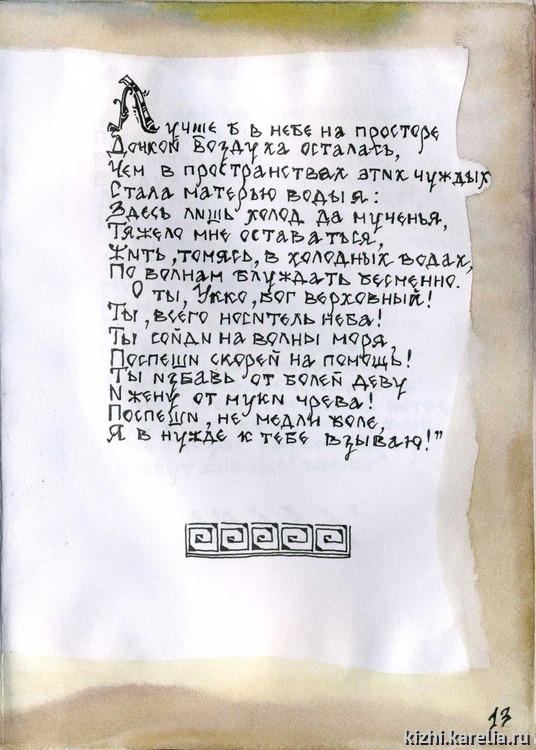 Лучше б в небе на просторе
Дочкой воздуха осталась,
Чем в пространствах этих чуждых
Стала матерью воды я:
Здесь лишь холод да мученья,
Тяжело мне оставаться,
Жить, томясь, в холодных водах,
По волнам блуждать бесменно.
О ты, Укко, бог верховный!
Ты, всего носитель неба!
Ты сойди на волны моря,
Поспеши скорей на помощь!
Ты избавь от болей деву
И жену от муки чрева!
Поспеши, не медли боле,
Я в нужде к тебе взываю!"
13
kizhi.karelia.ru